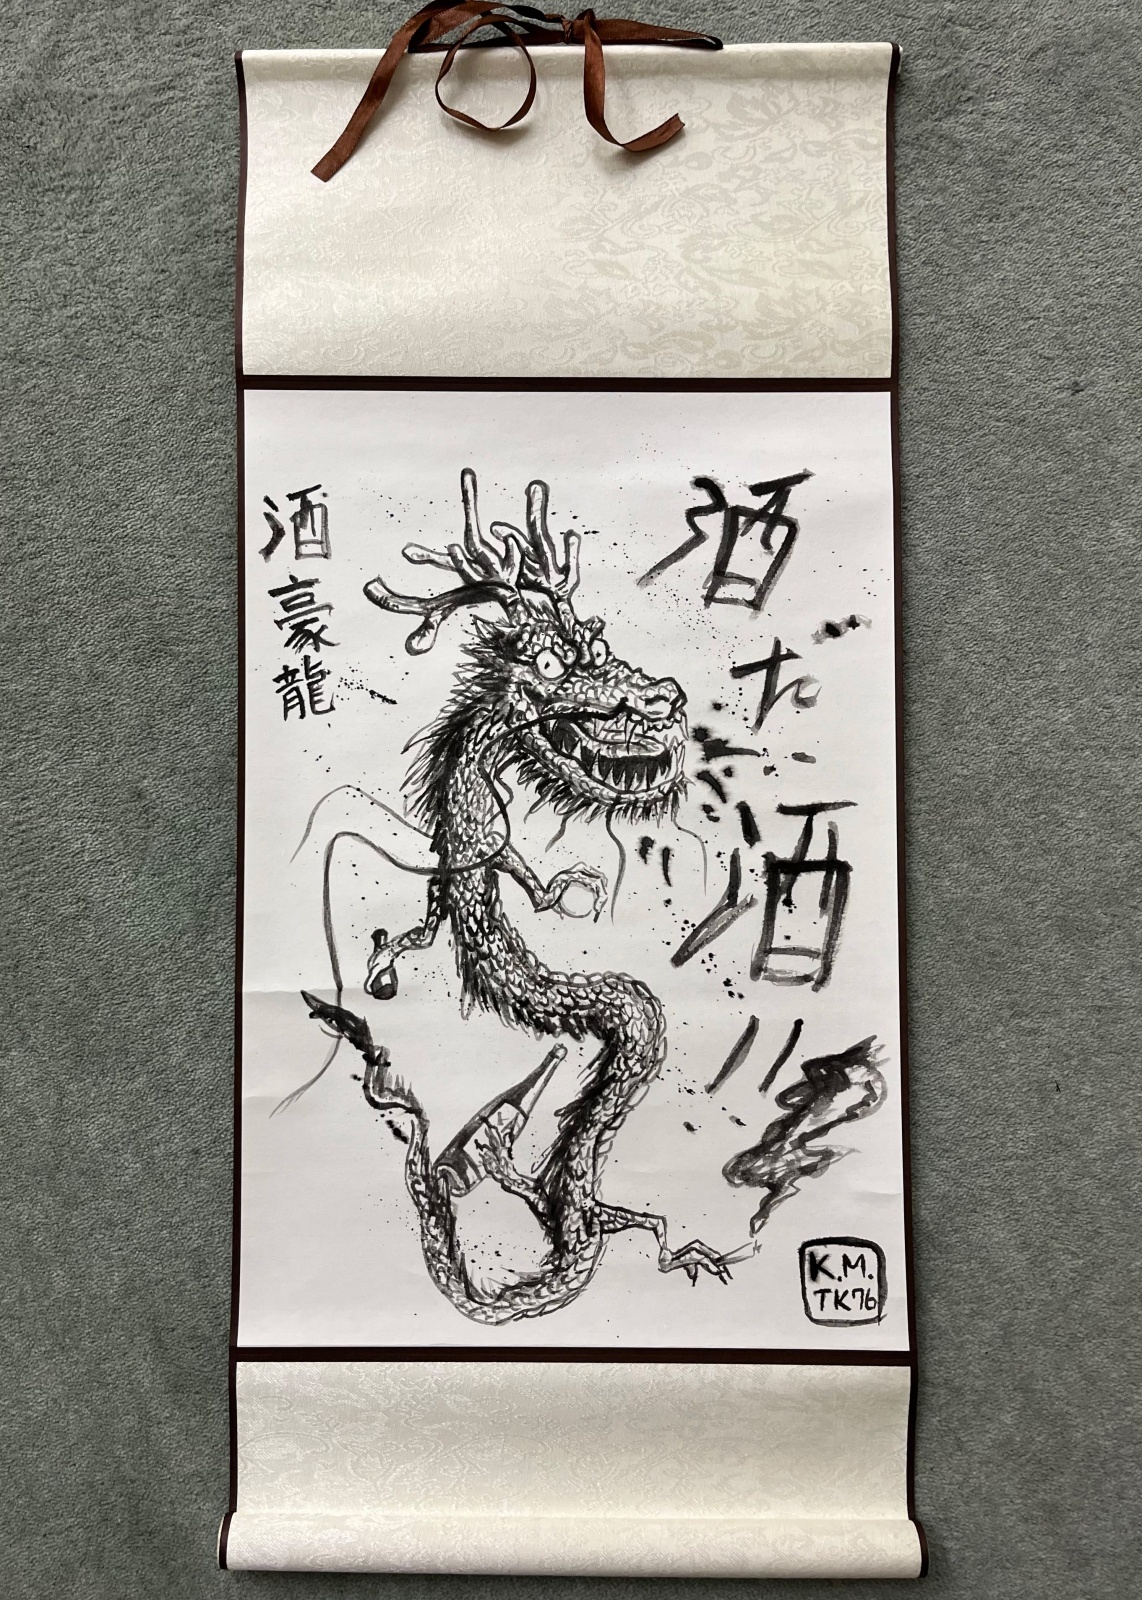 酒だ酒〃
酒豪龍
K.M.
TK76